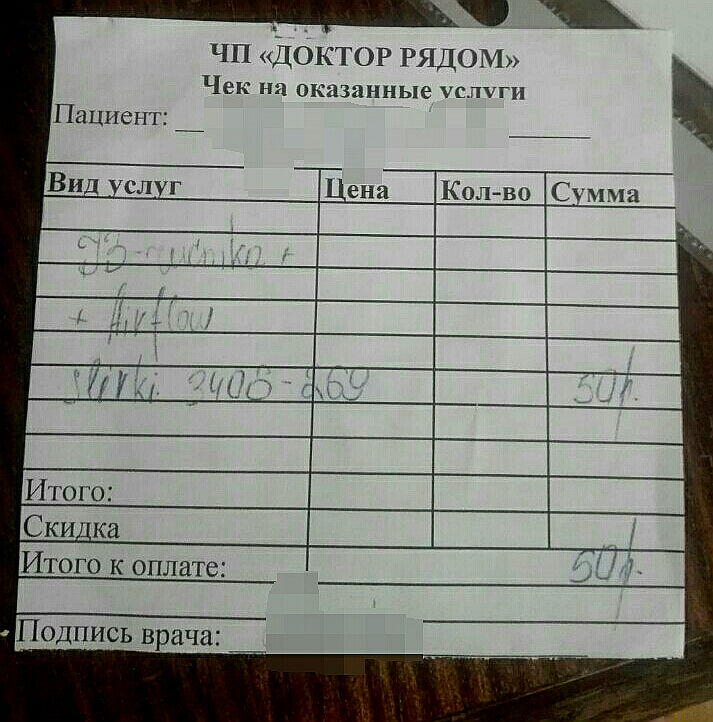 ЧП «ДОКТОР РЯДОМ»
Чек на оказанные услуги
Пациент:
Вид услуг Цена Кол-во Сумма
УЗ-чистка +
+ Airflow
50р.
Итого:
Скидка
Итого к оплате: 50р.
Подпись врача: